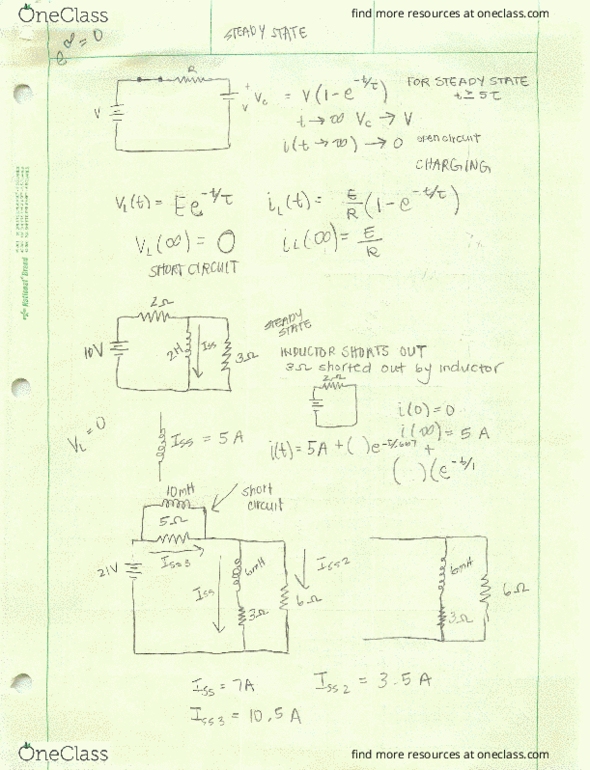 OneClass
find more resources at oneclass.com
e^∞ = 0
STEADY STATE
R
V
+ Vc = V(1-e^-t/τ)
V
FOR STEADY STATE
t ≥ 5τ
t → ∞ Vc → V
i(t → ∞) → 0 open circuit
CHARGING
VL(t) = Ee^-t/τ
iL(t) = E/R (1-e^-t/τ)
VL(∞) = 0
iL(∞) = E/R
SHORT CIRCUIT
2Ω
10V
2H
Iss
3Ω
STEADY
STATE
INDUCTOR SHORTS OUT
3Ω shorted out by inductor
2Ω
i(0) = 0
i(∞) = 5 A
VL = 0
Iss = 5 A
i(t) = 5A + ( )e
+
( )(e^-t/1
10mH
short
circuit
5Ω
Iss3
21V
Iss
6mH
3Ω
6Ω
Iss2
6mH
3Ω
6Ω
Iss = 7A
Iss2 = 3.5 A
Iss3 = 10.5 A
OneClass
find more resources at oneclass.com